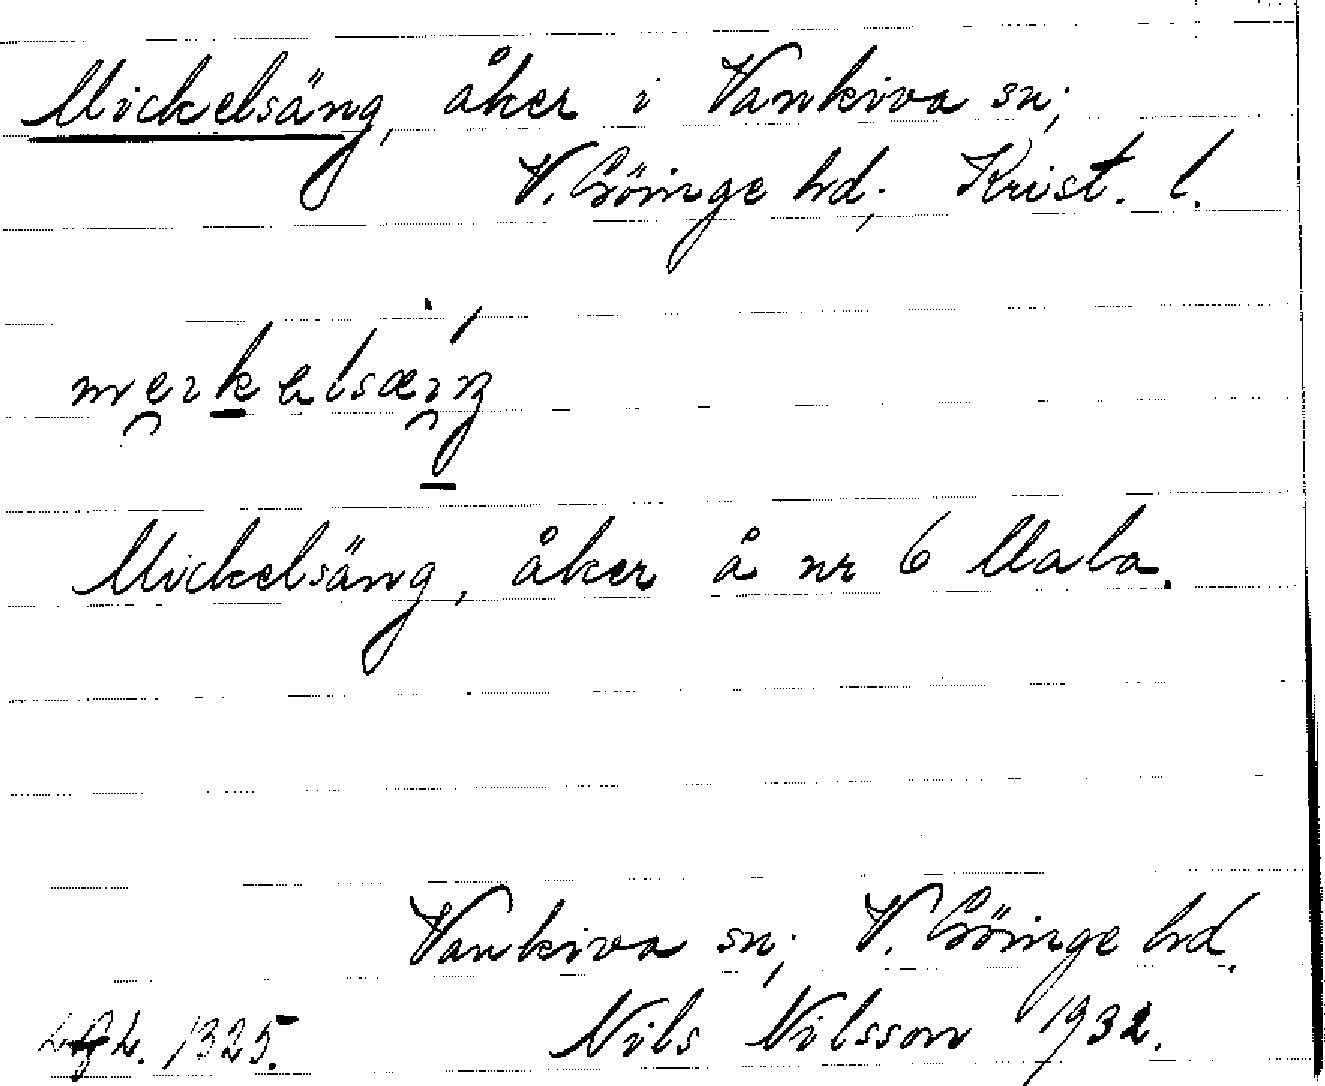 Mickelsäng, åker i Vankiva sn;
V. Göinge hd; Krist. l.
meikelsæiŋ
Mickelsäng, åker å nr 6 Mala.
Vankiva sn; V. Göinge hd.
1325. Nils Nilsson 1932.